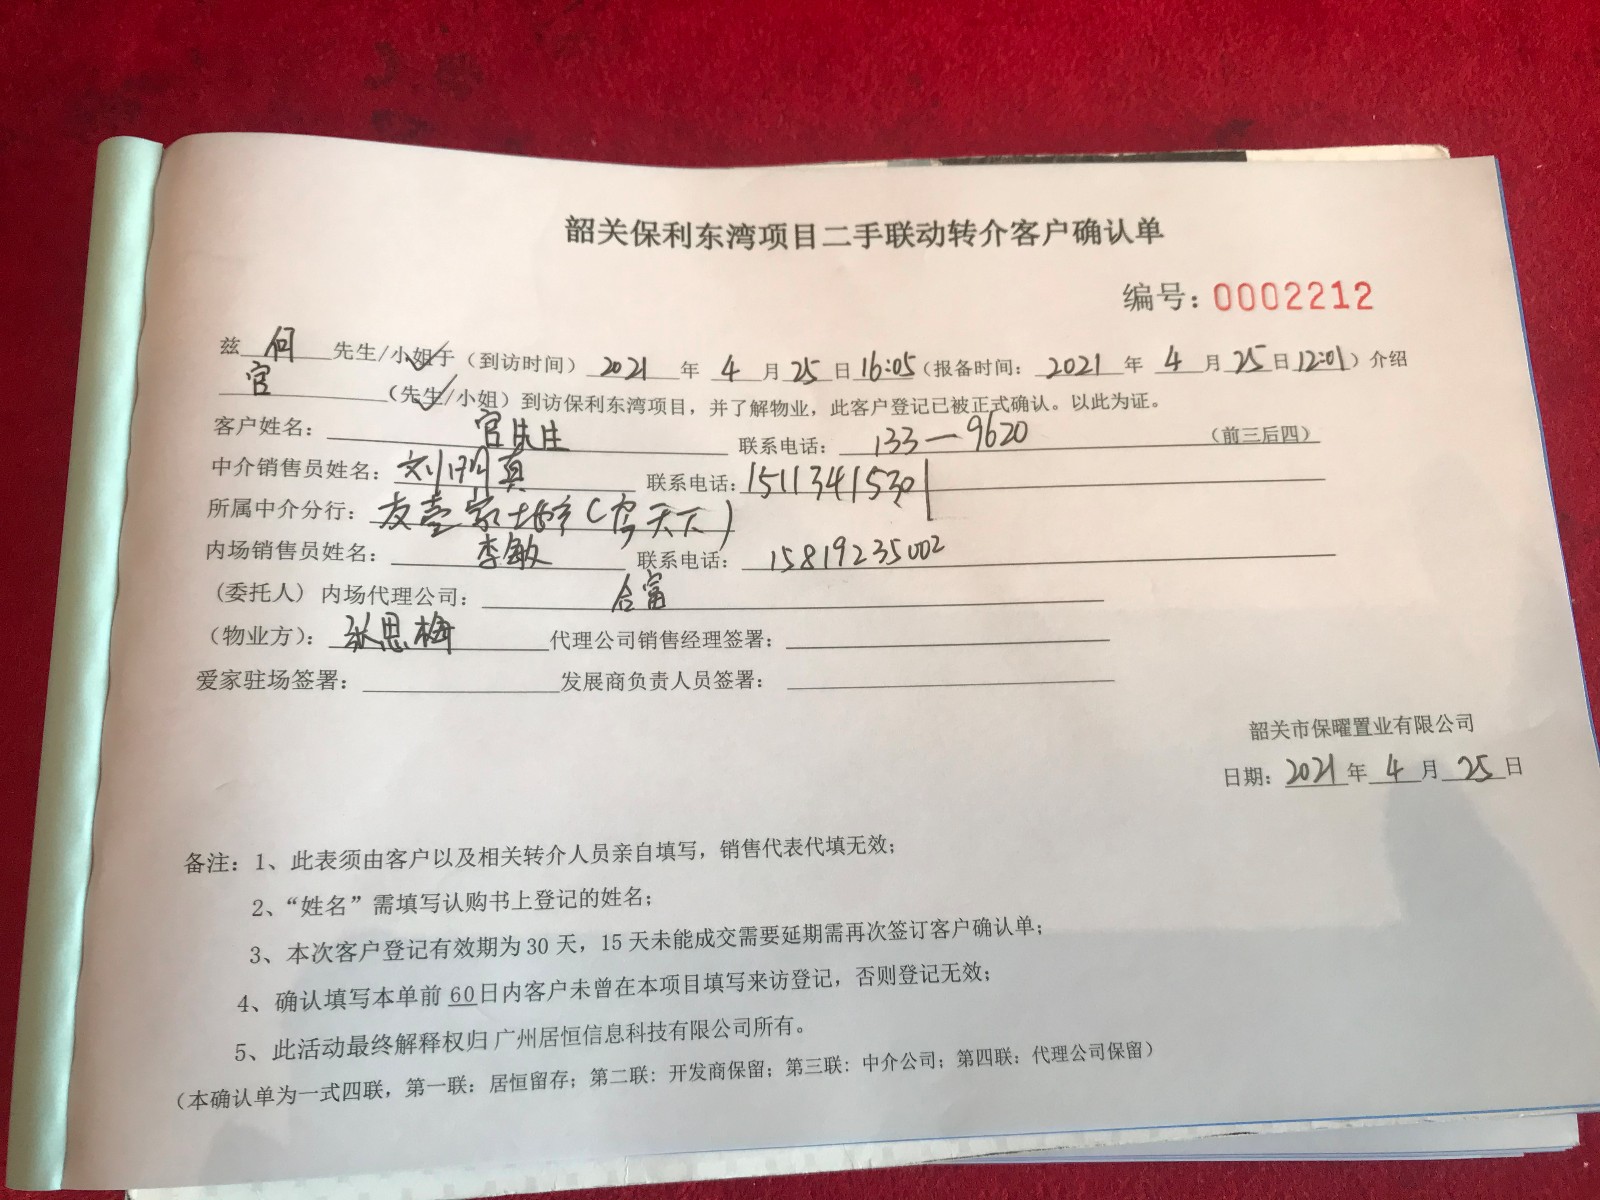 韶关保利东湾项目二手联动转介客户确认单
编号：0002212
兹 何 先生/小姐于（到访时间） 2021 年 4 月 25 日 16:05（报备时间： 2021 年 4 月 25 日 12:01）介绍
官 （先生/小姐）到访保利东湾项目，并了解物业，此客户登记已被正式确认。以此为证。
客户姓名： 官先生 联系电话： 133—9620 （前三后四）
中介销售员姓名： 刘 真 联系电话：15113415301
所属中介分行： 友壹家 （房天下）
内场销售员姓名： 李敏 联系电话： 15819235002
（委托人）内场代理公司： 合富
（物业方）： 张思梅 代理公司销售经理签署：
爱家驻场签署： 发展商负责人员签署：
韶关市保曜置业有限公司
日期：2021 年 4 月 25 日
备注：1、此表须由客户以及相关转介人员亲自填写，销售代表代填无效；
2、“姓名”需填写认购书上登记的姓名；
3、本次客户登记有效期为30天，15天未能成交需要延期需再次签订客户确认单；
4、确认填写本单前 60日内客户未曾在本项目填写来访登记，否则登记无效；
5、此活动最终解释权归 广州居恒信息科技有限公司所有。
（本确认单为一式四联，第一联：居恒留存；第二联：开发商保留；第三联：中介公司；第四联：代理公司保留）